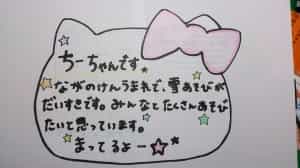 ちーちゃんです。
ながのけんうまれで、雪あそびが
だいすきです。みんなとたくさんあそび
たいと思っています。
まってるよー